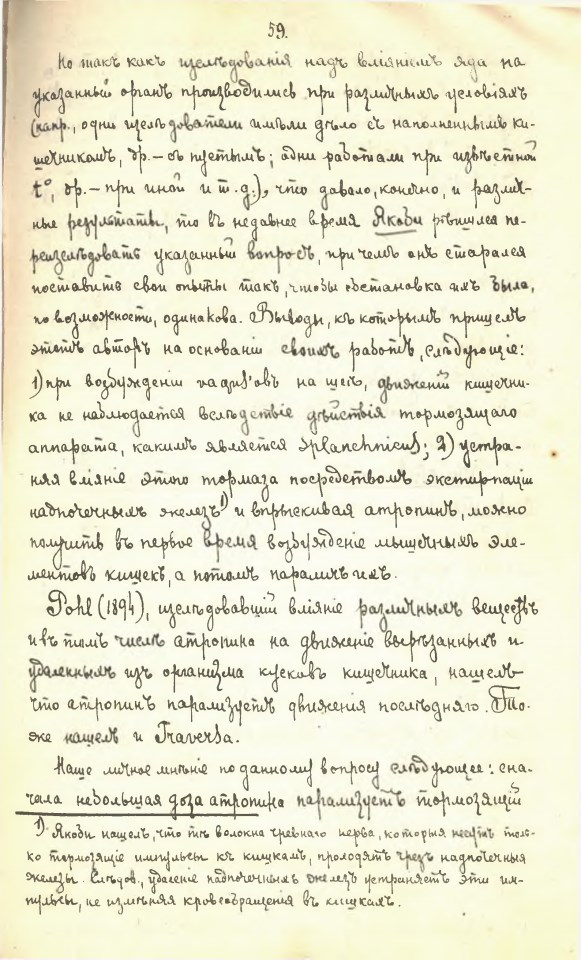 59.
Но такъ какъ изслѣдованія надъ вліяніемъ яда на
указанный органъ производились при различныхъ условіяхъ
(напр., одни изслѣдователи имѣли дѣло съ наполненнымъ ки-
шечникомъ, др. – съ пустымъ; одни работали при извѣстной
t°, др. – при иной и т.д.), что давало, конечно, и различ-
ные результаты, то въ недавнее время Якоби рѣшился пе-
реизслѣдовать указанный вопросъ, при чемъ онъ старался
поставить свои опыты такъ, чтобы обстановка ихъ была,
по возможности, одинакова. Выводы, къ которымъ пришелъ
этотъ авторъ на основаніи своихъ работъ, слѣдующіе:
1) при возбужденіи vagus'овъ на шеѣ, движеній кишечни-
ка не наблюдается вслѣдствіе дѣйствія тормозящаго
аппарата, какимъ является Splanchnicus; 2) устра-
няя вліяніе этого тормаза посредствомъ экстирпаціи
надпочечныхъ железъ 1) и впрыскивая атропинъ, можно
получить въ первое время возбужденіе мышечныхъ эле-
ментовъ кишекъ, а потомъ параличъ ихъ.
Pohl (1894), изслѣдовавшій вліяніе различныхъ веществъ
и въ томъ числѣ атропина на движеніе вырѣзанныхъ и
удаленныхъ изъ организма кусковъ кишечника, нашелъ
что атропинъ парализуетъ движенія послѣдняго. То-
же нашелъ и Traversa.
Наше личное мнѣніе по данному вопросу слѣдующее: сна-
чала небольшая доза атропина парализуетъ тормозящій
1) Якоби нашелъ, что тѣ волокна чревнаго нерва, которыя несутъ толь-
ко тормозящіе импульсы къ кишкамъ, проходятъ чрезъ надпочечныя
железы. Слѣдов., удаленіе надпочечныхъ железъ устраняетъ эти им-
пульсы, не измѣняя кровеобращенія въ кишкахъ.